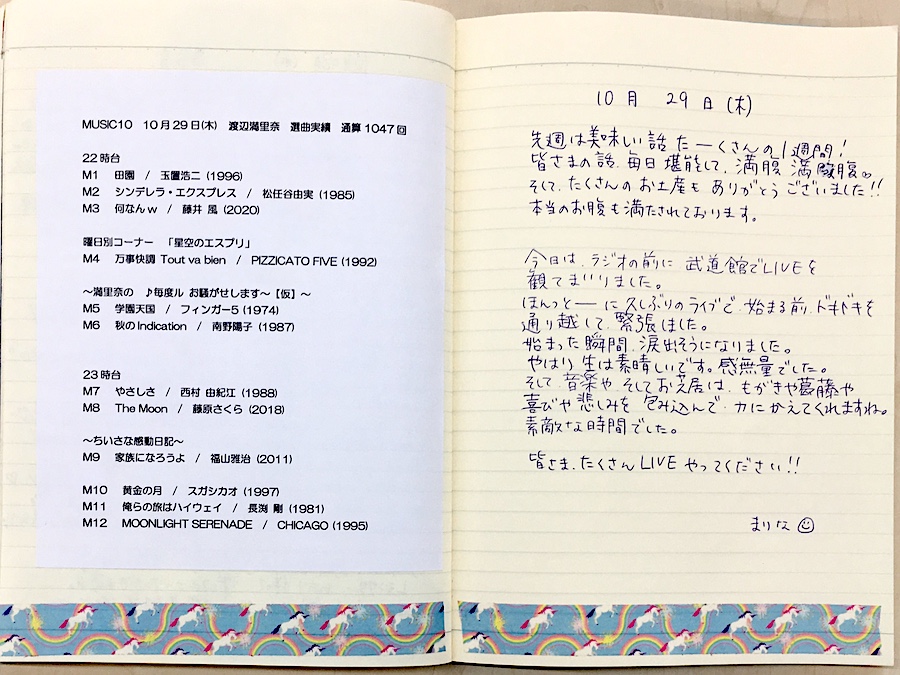 MUSIC10 10月29日(木) 渡辺満里奈 選曲実績 通算1047回
22時台
M1 田園 / 玉置浩二 (1996)
M2 シンデレラ・エクスプレス / 松任谷由実 (1985)
M3 何なんw / 藤井 風 (2020)
曜日別コーナー 「星空のエスプリ」
M4 万事快調 Tout va bien / PIZZICATO FIVE (1992)
～満里奈の ♪毎度ル お騒がせします～【仮】～
M5 学園天国 / フィンガー5 (1974)
M6 秋のIndication / 南野陽子 (1987)
23時台
M7 やさしさ / 西村 由紀江 (1988)
M8 The Moon / 藤原さくら (2018)
～ちいさな感動日記～
M9 家族になろうよ / 福山雅治 (2011)
M10 黄金の月 / スガシカオ (1997)
M11 俺らの旅はハイウェイ / 長渕 剛 (1981)
M12 MOONLIGHT SERENADE / CHICAGO (1995)
10月 29日 (木)
先週は美味しい話 たーくさんの1週間!
皆さまの話、毎日堪能して、満腹 満腹。
そして、たくさんのお土産も ありがとうございました!!
本当のお腹も満たされております。
今日は、ラジオの前に 武道館でLIVEを
観てまいりました。
ほんっとーに久しぶりのライブで、始まる前、ドキドキを
通り越して、緊張しました。
始まった瞬間、涙出そうになりました。
やはり 生は素晴しいです。感無量でした。
そして、音楽や、そしてお芝居は、もがきや葛藤や
喜びや 悲しみを 包み込んで、力にかえてくれますね。
素敵な時間でした。
皆さま、たくさんLIVEやってください!!
まりな